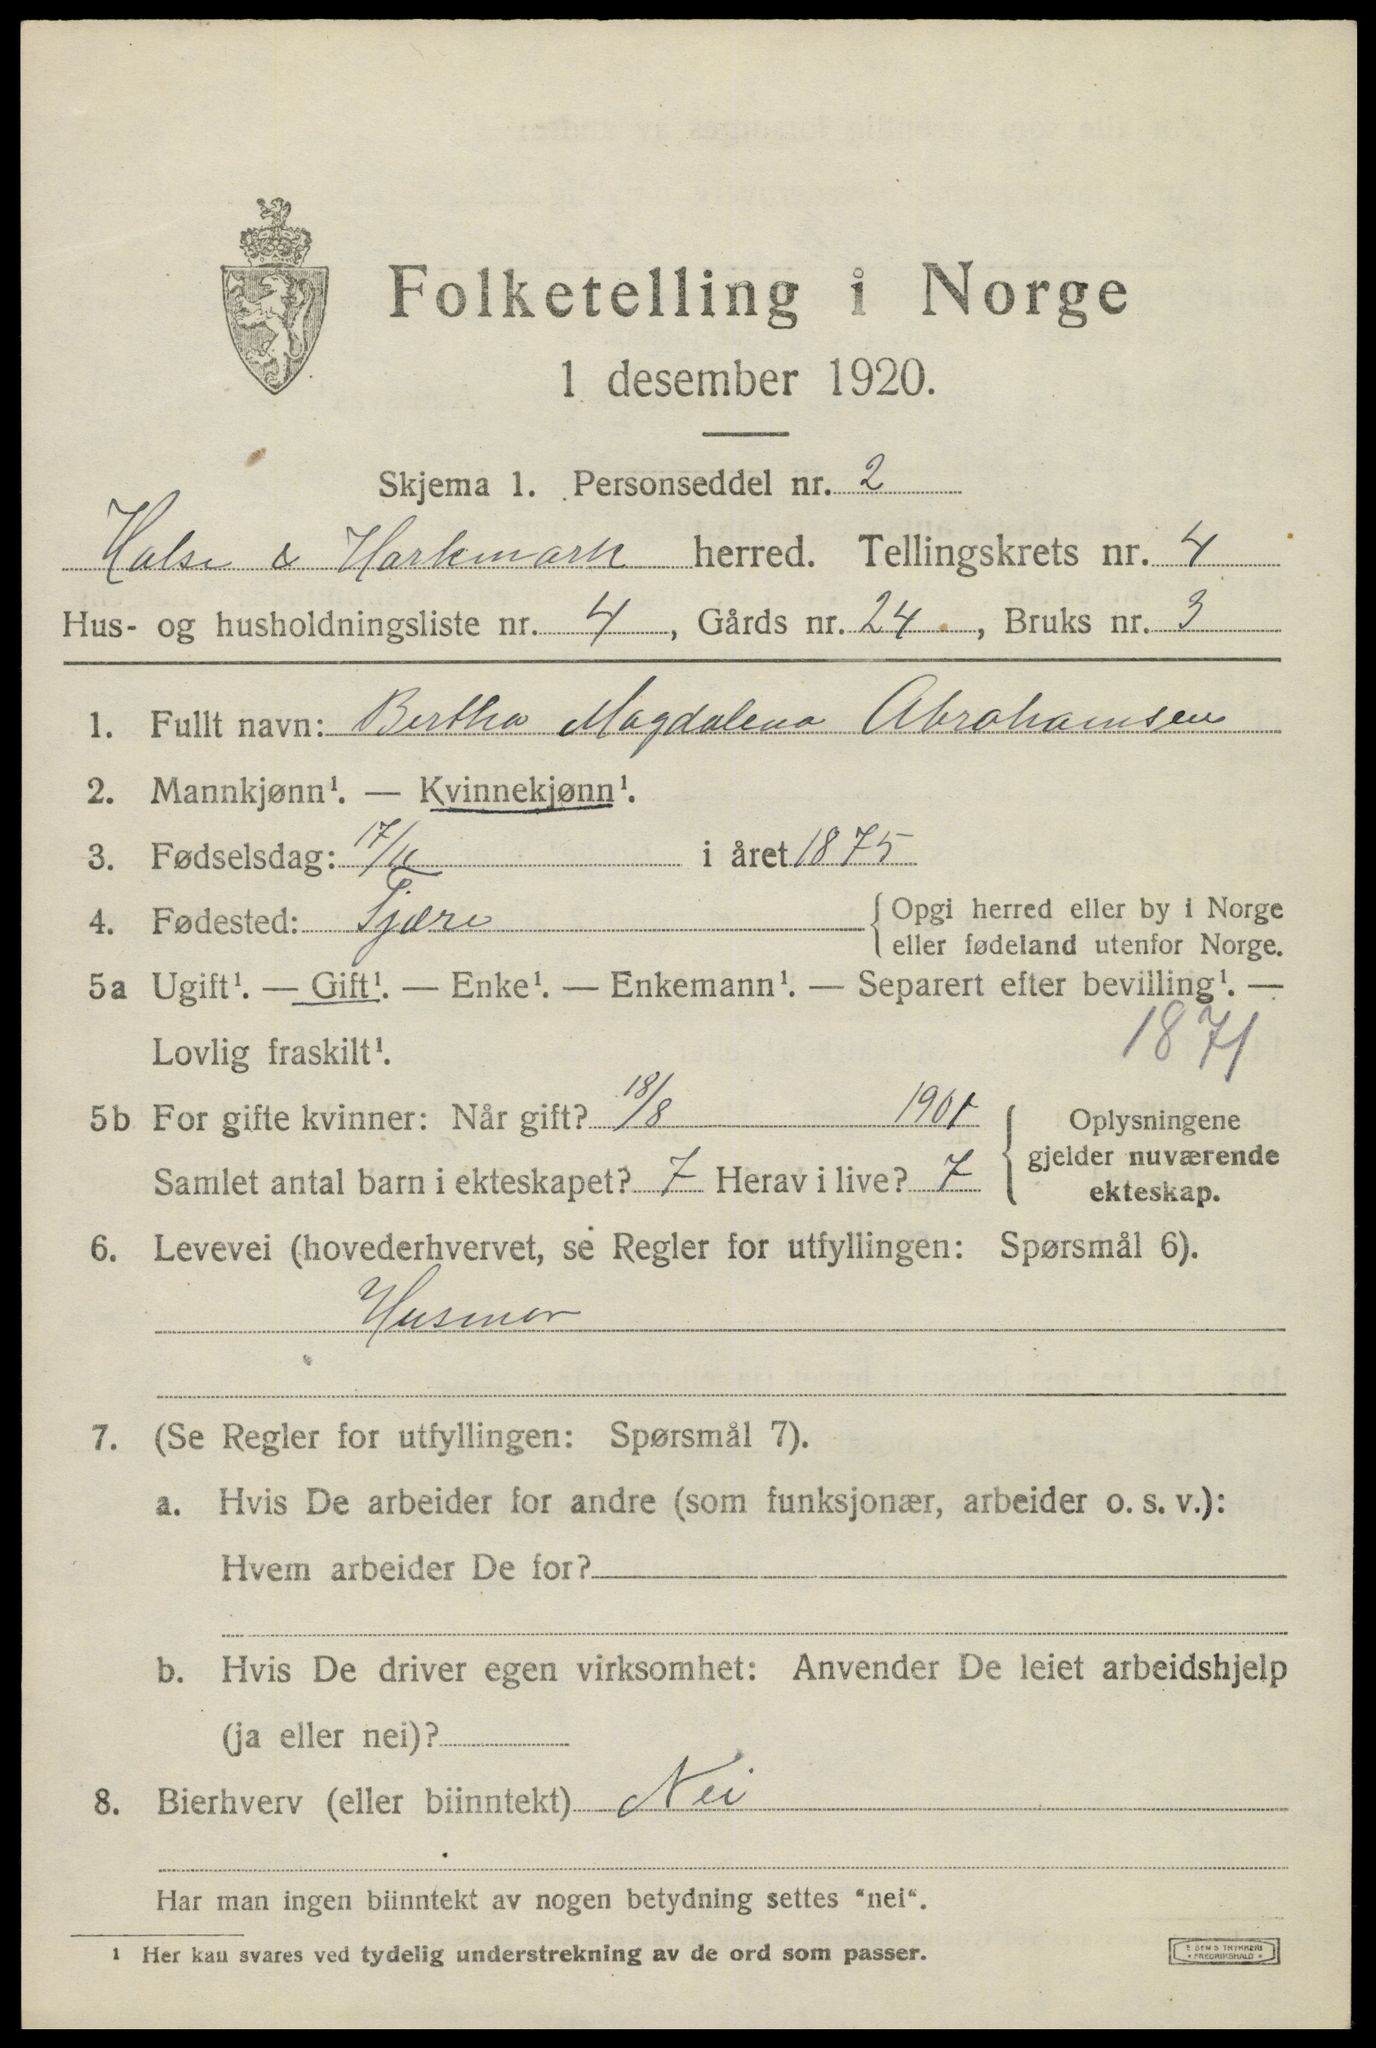 Folketelling i Norge
1 desember 1920.
Skjema 1. Personseddel nr. 2
Halse & Harkmark herred. Tellingskrets nr. 4
Hus- og husholdningsliste nr. 4, Gårds nr. 24, Bruks nr. 3
1. Fullt navn: Bertha Magdalena Abrahamsen
2. Mannkjønn¹. — Kvinnekjønn¹.
3. Fødselsdag: 17/11 i året 1875
4. Fødested: Fjære {Opgi herred eller by i Norge
eller fødeland utenfor Norge.
5a Ugift¹. — Gift¹. — Enke¹. — Enkemann¹. — Separert efter bevilling¹. —
Lovlig fraskilt¹. 1871
5b For gifte kvinner: Når gift? 18/8 1901 { Oplysningene
gjelder nuværende
Samlet antal barn i ekteskapet? 7 Herav i live? 7 ekteskap.
6. Levevei (hovederhvervet, se Regler for utfyllingen: Spørsmål 6).
Husmor
7. (Se Regler for utfyllingen: Spørsmål 7).
a. Hvis De arbeider for andre (som funksjonær, arbeider o. s. v.):
Hvem arbeider De for?
b. Hvis De driver egen virksomhet: Anvender De leiet arbeidshjelp
(ja eller nei)?
8. Bierhverv (eller biinntekt) Nei
Har man ingen biinntekt av nogen betydning settes "nei".
¹ Her kan svares ved tydelig understrekning av de ord som passer.
E SEMS TRYKKERI
• FREDRIKSHALD •